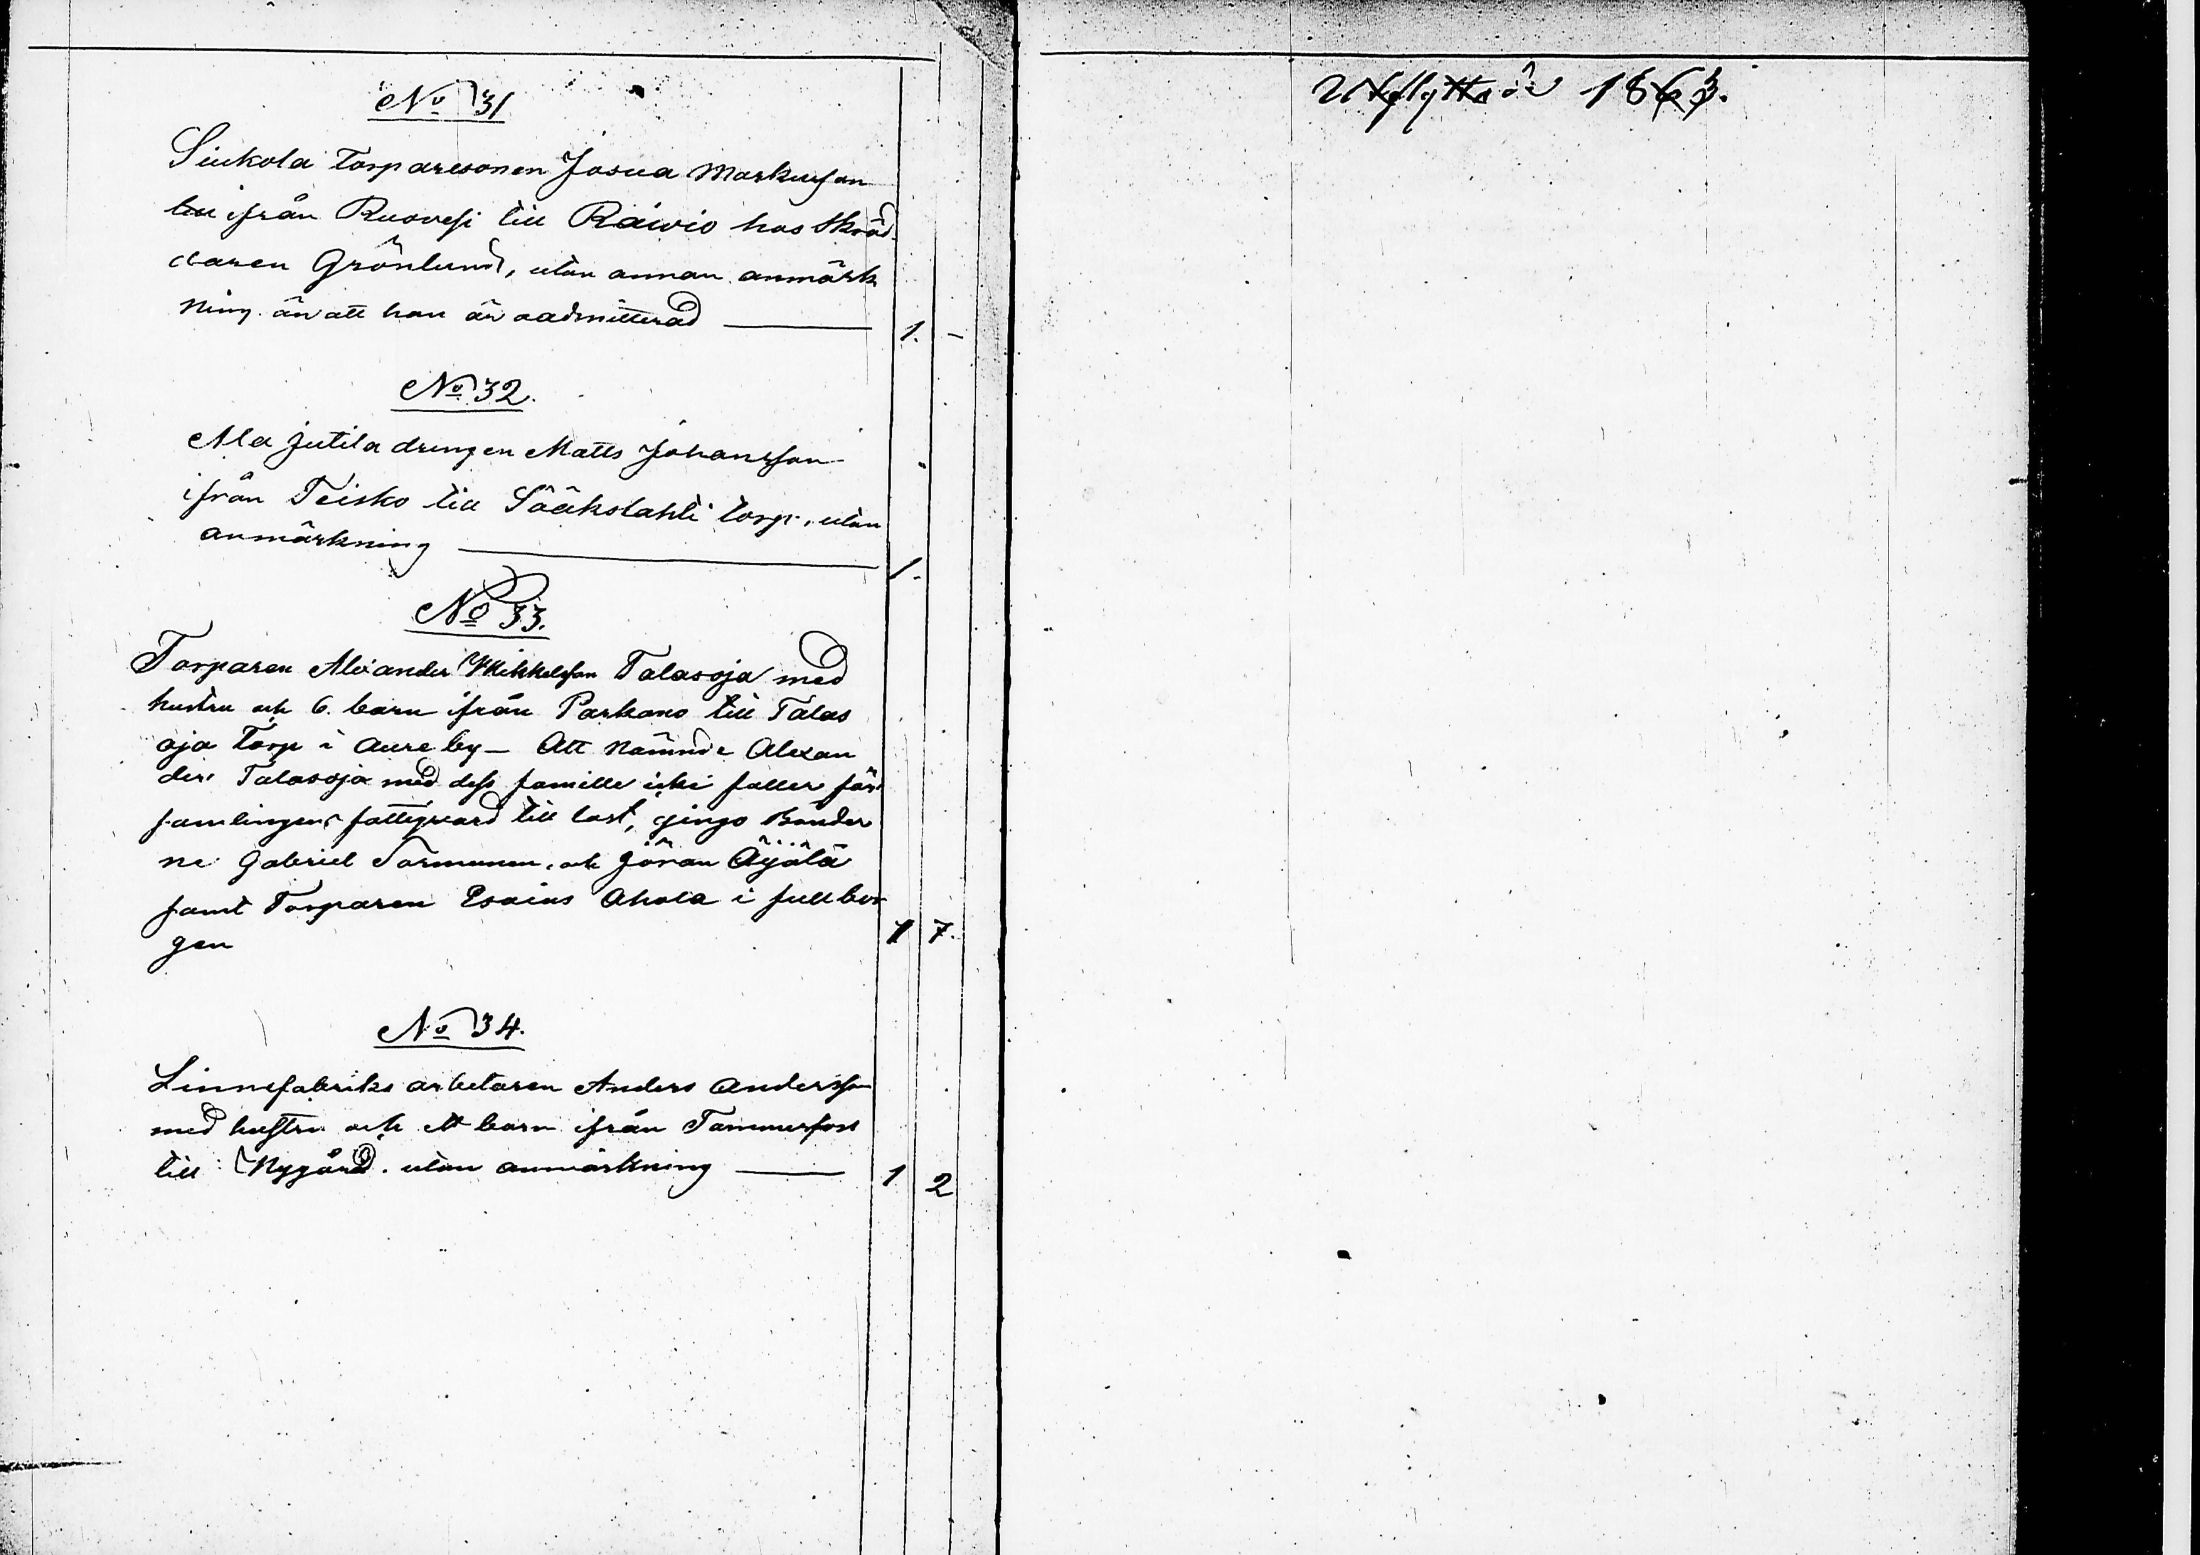 No 31
Siukola Torparesonen Josua Markusson
ifrån Ruovesi till Raivio hos Skräd-
daren Grönlund, utan annan anmärk
ning än att han är oadmitterad 1. -
No 32.
Ala Jutila drengen Matts Johansson
ifrån Teisko till Sääkslahti torp, utan
anmärkning 1.
No 33.
Torparen Alexander Mikkelsson Talasoja med
hustru och 6. barn ifrån Parkano till Talas
oja Torp i Aure by - Att nämnde Alexan
der Talasoja med dess famille icke faller för
samlingens fattigvard till last, gingo Bönder
ne Gabriel Tormunen och Jöran Äijälä
samt Torparen Esaias Ahola i full bor
gen 1 7.
No 34.
Linnefabriks arbetaren Anders Andersson
med hustru och ett barn ifrån Tammerfors
till Nygård. utan anmärkning 1 2
Utflyttn år 1863.